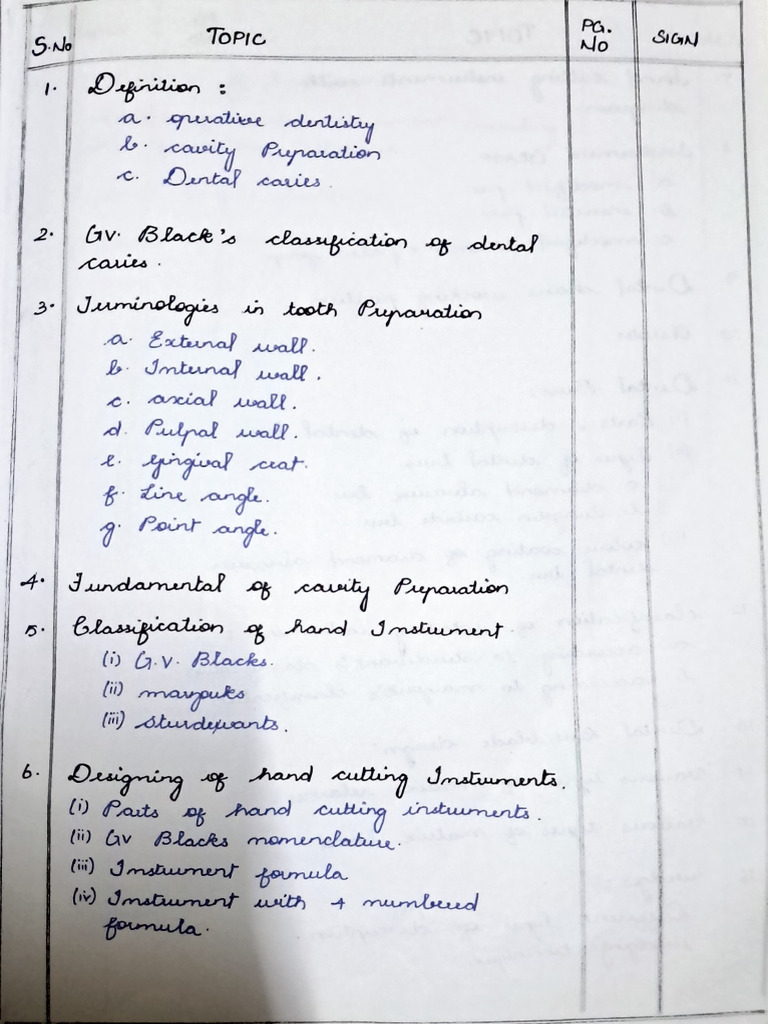 S.No TOPIC PG. NO SIGN
1. Definition :
a. operative dentistry
b. cavity Preparation
c. Dental caries.
2. Gv. Black's classification of dental
caries.
3. Terminologies in tooth Preparation
a. External wall.
b. Internal wall.
c. axial wall.
d. Pulpal wall.
e. gingival seat.
f. Line angle.
g. Point angle.
4. Fundamental of cavity Preparation
5. Classification of hand Instrument.
(i) G.V. Blacks.
(ii) marzouks
(iii) sturdevants.
6. Designing of hand cutting Instruments.
(i) Parts of hand cutting instruments.
(ii) Gv Blacks nomenclature.
(iii) Instrument formula
(iv) Instrument with 4 numbered
formula.